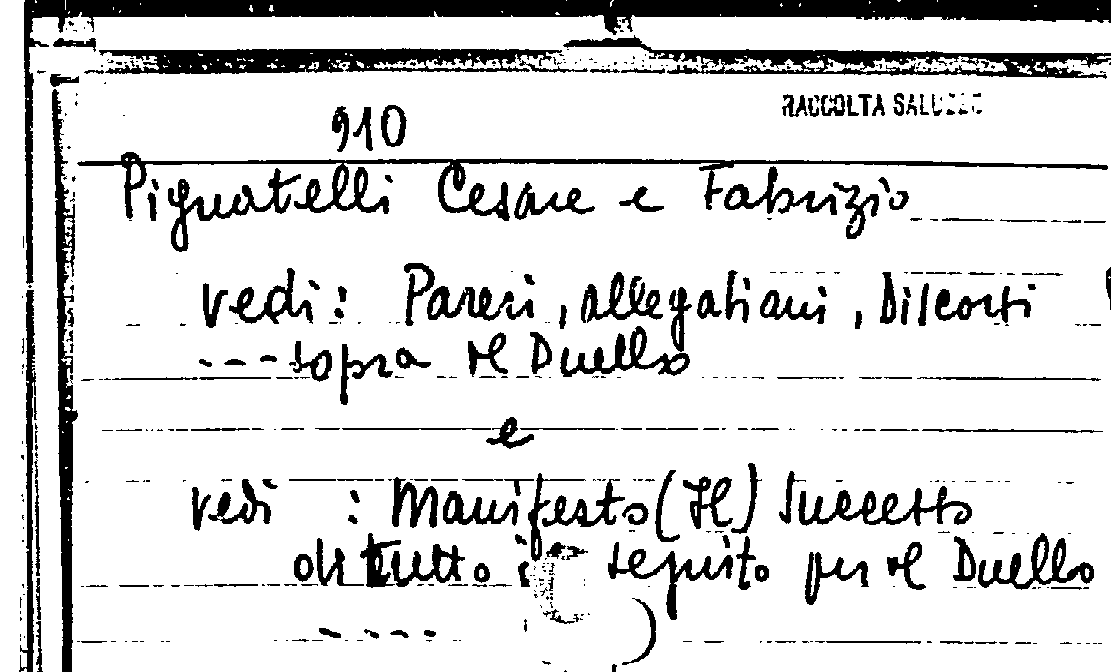 RACCOLTA SALUZZO
910
Pignatelli Cesare e Fabrizio
vedi: Pareri, allegationi, discorsi
---sopra il Duello
e
vedi : Manifesto (Il) successo
di tutto il seguito per il Duello
----- )